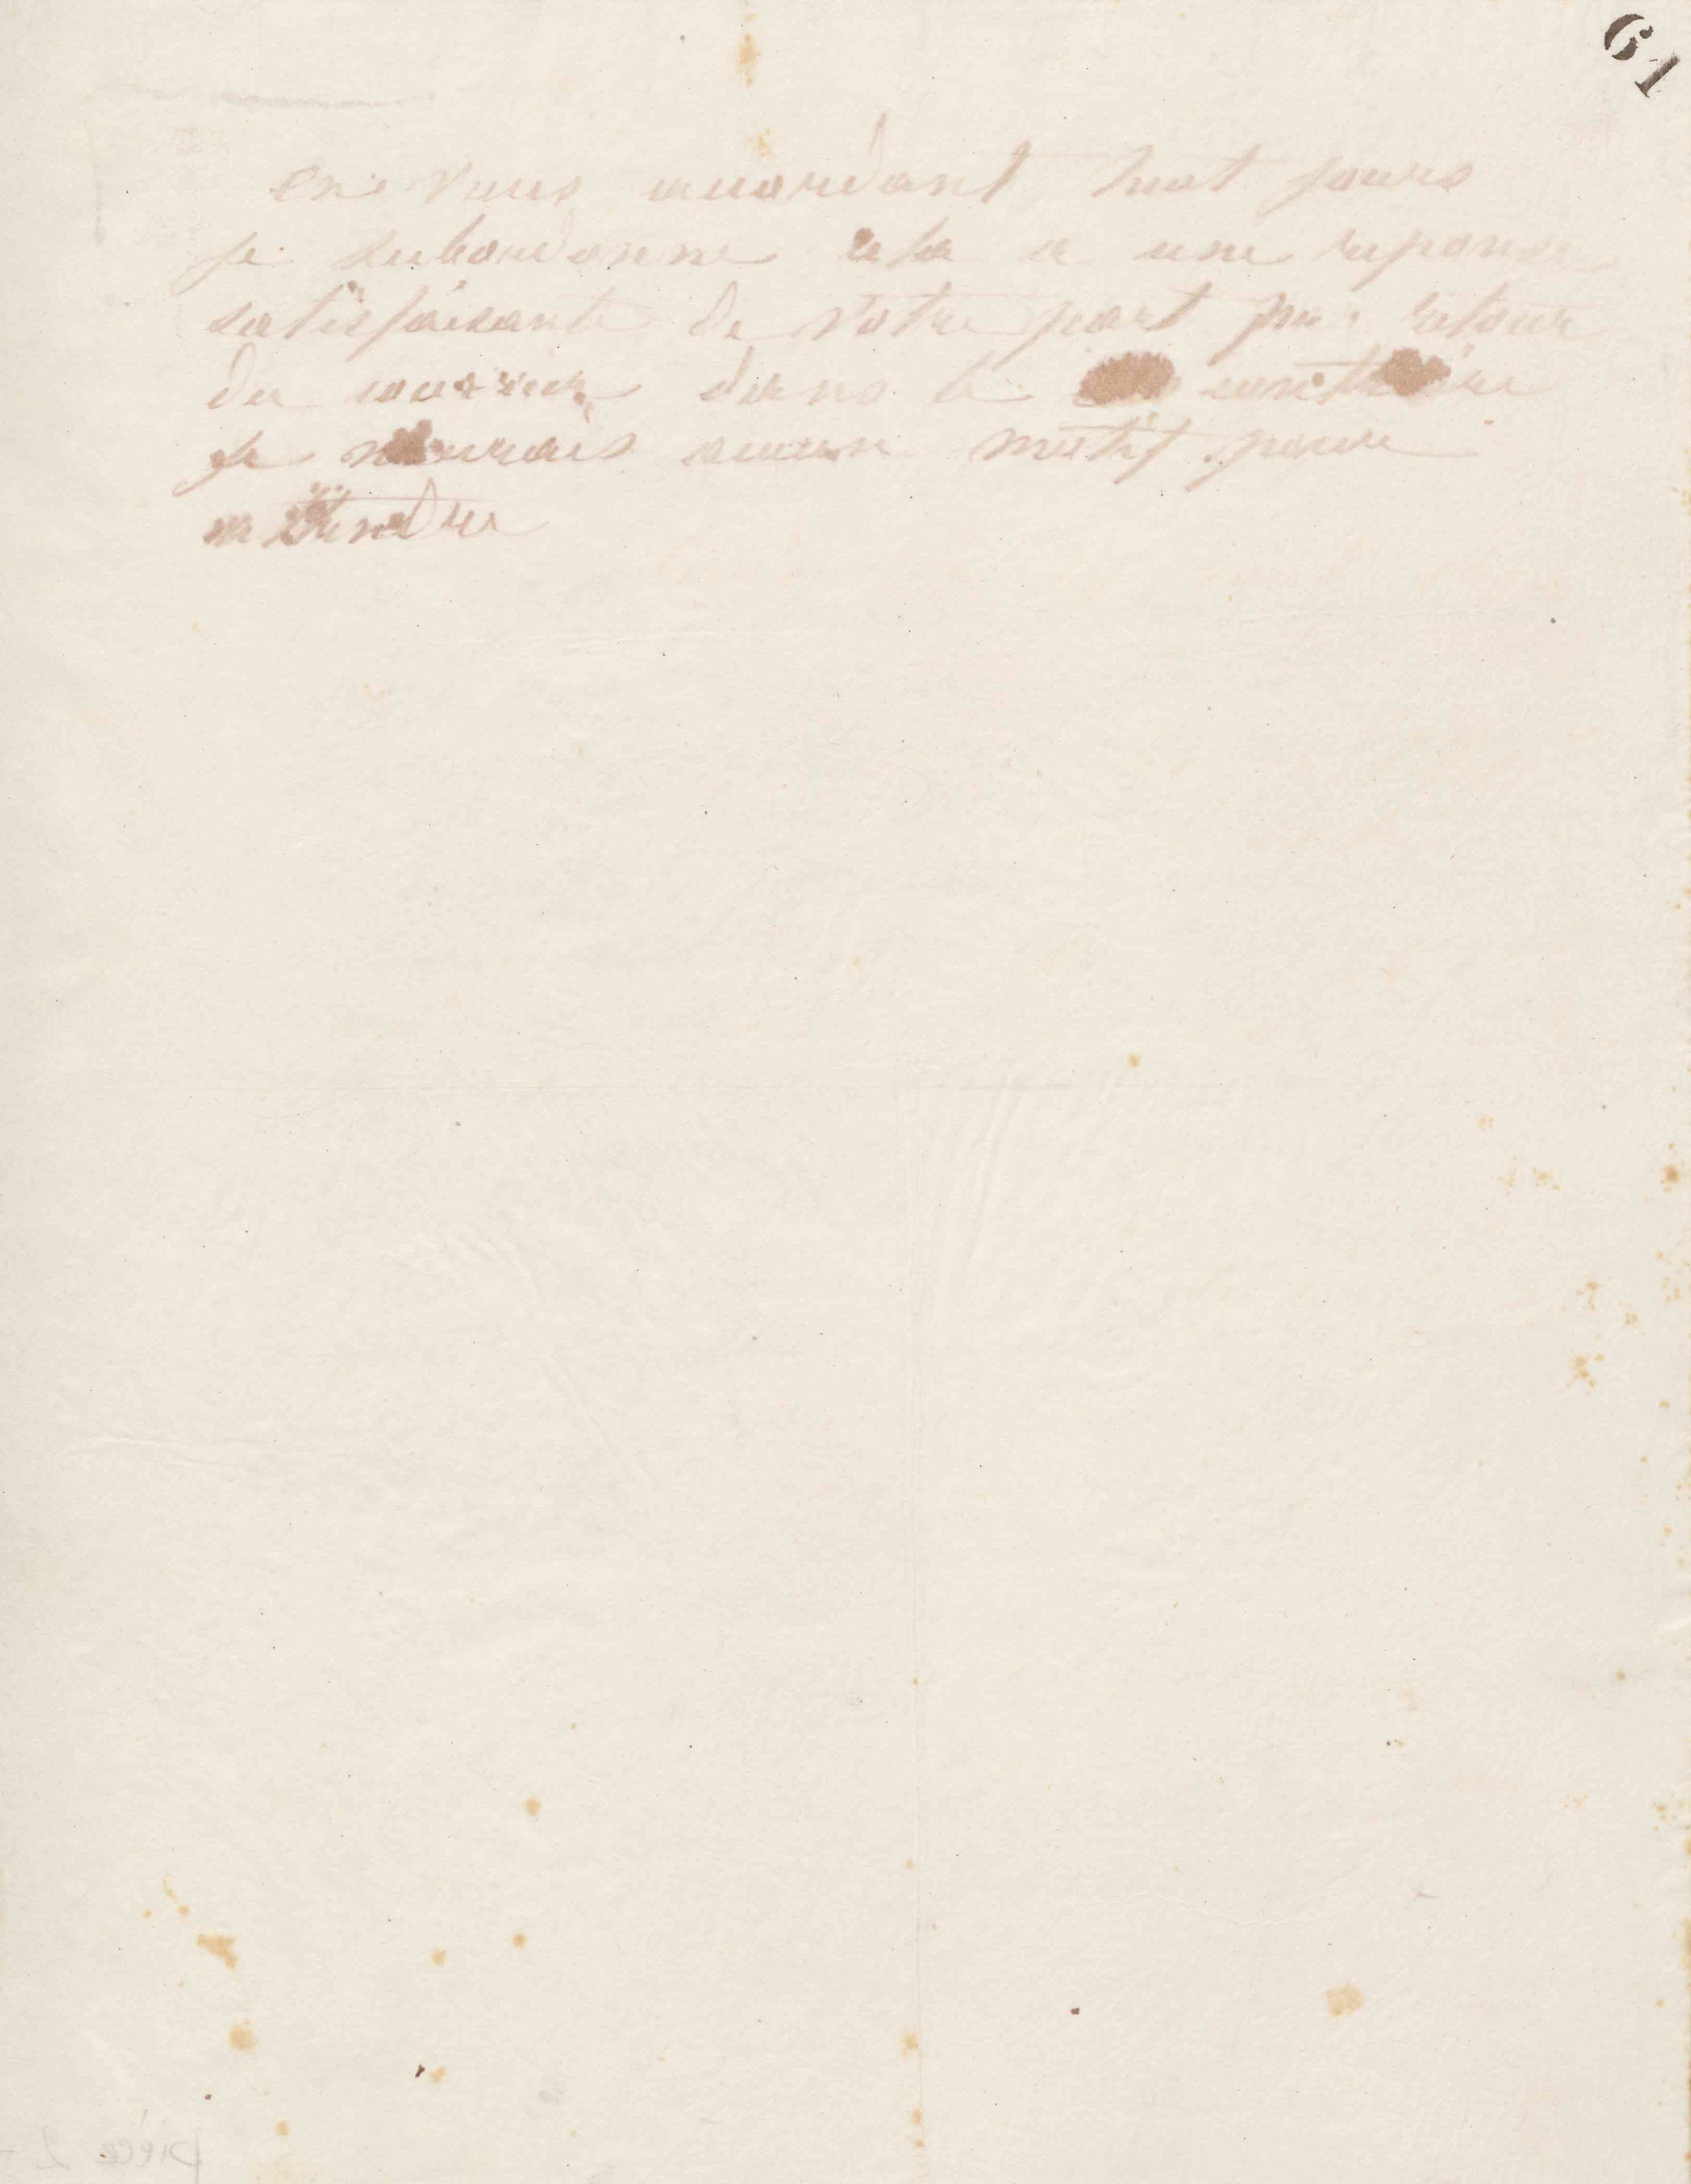 61
en vous accordant huit jours
je subordonne cela a une reponse
satisfaisante de votre part par retour
du courrier dans le contraire
je n'aurais aucun motif pour
attendre